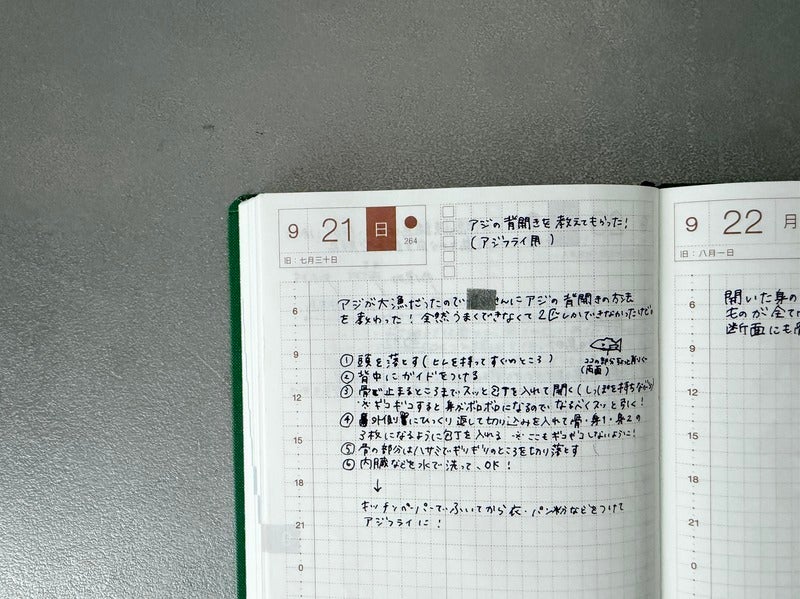 9 21 日 264
旧：七月三十日
アジの背開きを教えてもらった！
(アジフライ用)
アジが大漁だったので さんにアジの背開きの方法
を教わった！全然うまくできなくて2匹しかできなかったけど。
①頭を落とす(ヒレを持ってすぐのところ)
ココの部分もっと削りぐ
(両面)
②背中にガイドをつける
③骨で止まるところまでスッと包丁を入れて開く(しっぽを持ちながら)
※ギコギコすると身がボロボロになるのでなるべくスッと引く！
④外側にひっくり返して切り込みを入れて骨・身1・身2の
3枚になるように包丁を入れる ※ここもギコギコしないように！
⑤骨の部分はハサミでギリギリのところを切り落とす
⑥内臓などを水で洗って、OK！
↓
キッチンペーパーでふいてから衣・パン粉などをつけて
アジフライに！
6
9
12
15
18
21
0
9 22 月
旧：八月一日
開いた身の
ものが全て
断面にも
6
9
12
15
18
21
0